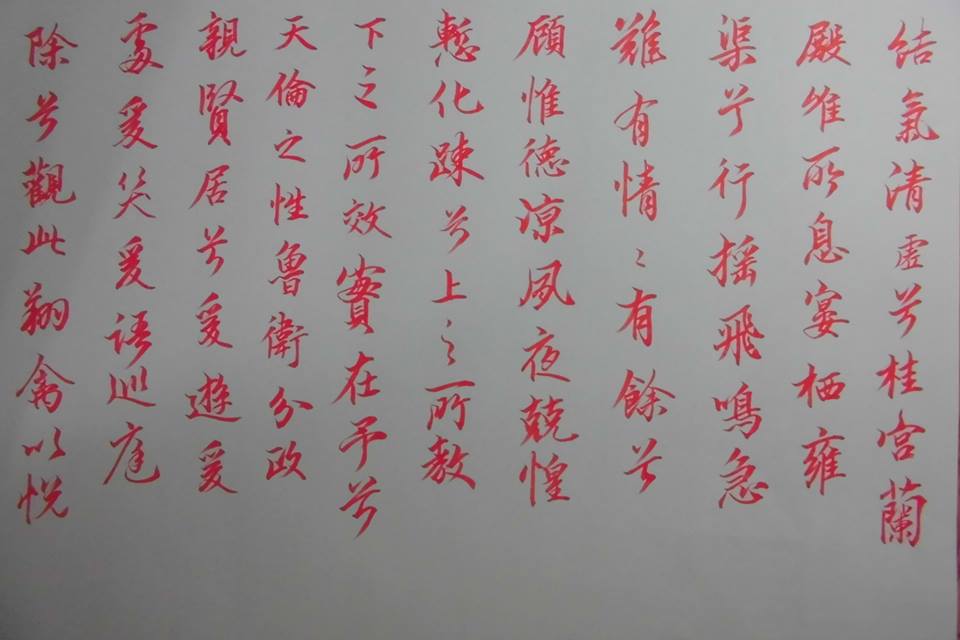 結氣清虛兮桂宮蘭
殿唯所息宴栖雍
渠兮行搖飛鳴急
難有情〻有餘兮
顧惟德涼夙夜兢惶
慙化踈兮上之所教
下之所效實在予兮
天倫之性魯衛分政
親賢居兮爰遊爰
處爰笑爰語巡庭
除兮觀此翔禽以悅